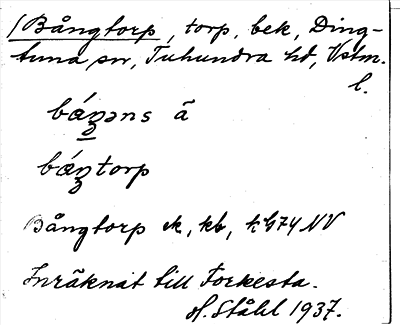 /Bångtorp, torp, bek, Ding-
tuna sn, Tuhundra hd, Vstm.
l.
bá̱ŋəns ã
báŋtorp
Bångtorp ek, kb, hb74 NV
Inräknat till Forkesta.
H. Ståhl 1937.